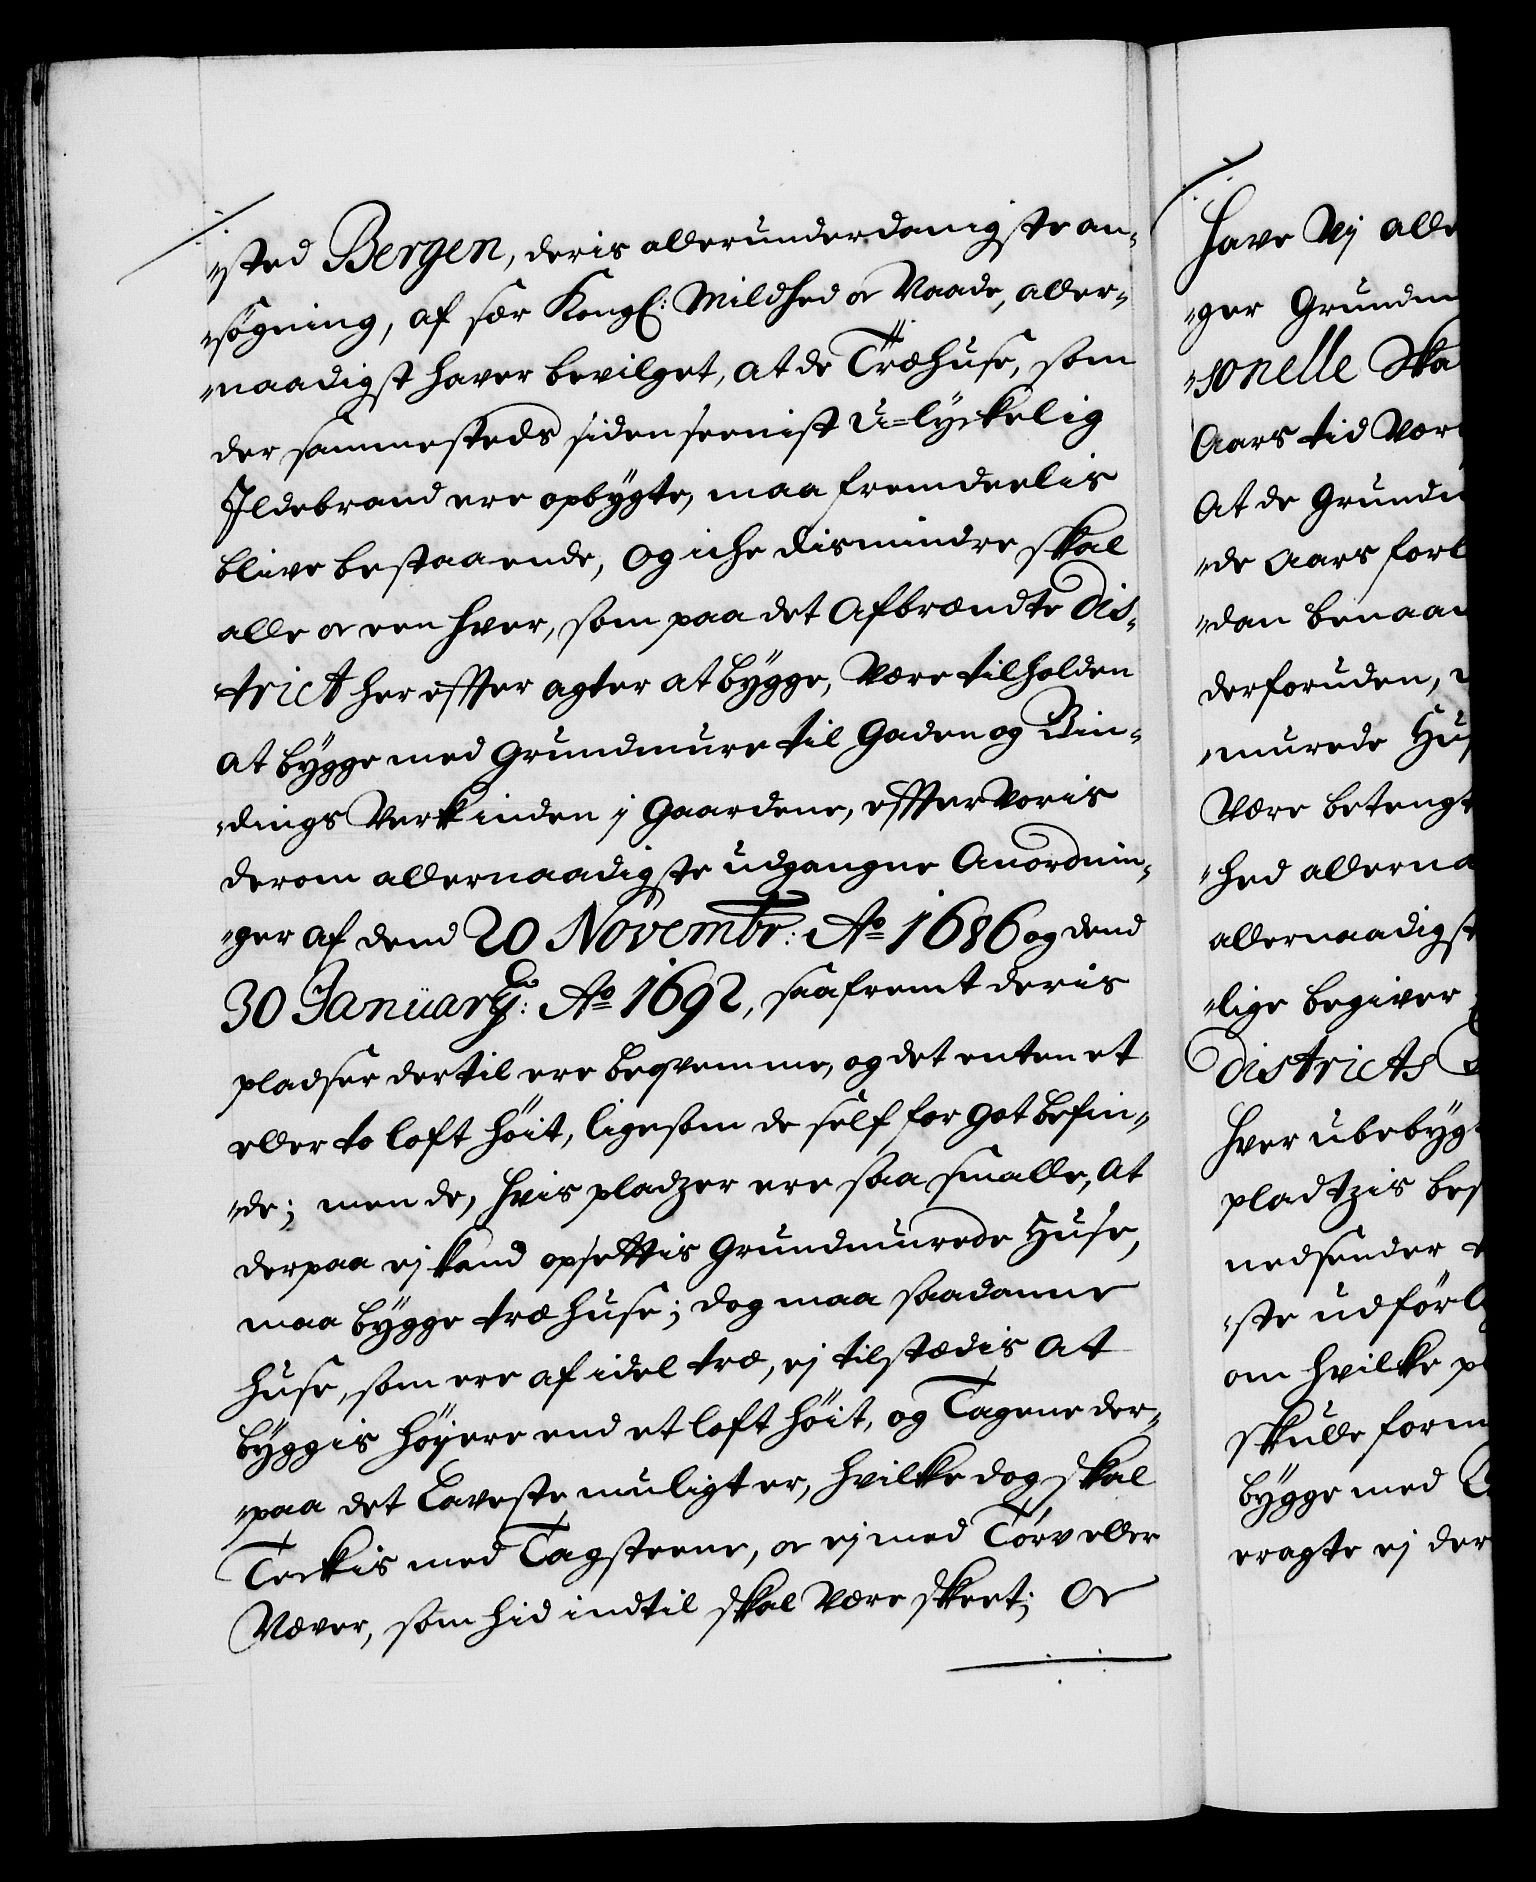 sted Bergen, deris allerunderdanigste an-
søgning, af sær Kongl: Mildhed oc Naade, aller-
naadigst haver bevilget, at de Træhuse, som
der sammesteds siden seeniste U-lyckelig
Ildebrand ere opbygte, maa fremdeelis
blive bestaaende, og icke disminder skal
alle oc een hver, som paa det afbrændte Dis-
trict her effter agter at bygge, være tilholden
at bygge med Grundmure til Gaden og Bin-
dings Verk inden i Gaardene, effter Voris
derom allernaadigste udgangne Anordnin-
ger af dend 20 Novembr: Ao 1686 og dend
30 Januarij: Ao 1692, saafremt deris
pladser dertil ere beqvemme, og det enten et
eller to loft høit, ligesom de self for got befin-
de; men de, hvis pladzer ere saa smalle, at
derpaa ej kand opsettis Grundmurede Huse,
maa bygge træhuse; dog maa saadanne
huse, som ere af idel træ, ej tilstædis at
byggis høyere end et loft høit, og Tagene der-
paa det Laveste muligt er, hvilke dog skal
Teckis med Tagsteene, oc ej med Törv eller
Næver, som hid indtil skal være skeet; Oc
Have Vij alle
ger Grundm
sonelle Ska
Aars tid vær
At de Grundm
de Aars forl
dan benaad
derforuden,
murede Hus
Være betengt
hed allerna
allernaadigst
lige begiver
Districts
Hver ubebyg
pladtzis bes
nedsender
ste udførl
om hvilke pl
skulle form
bygge med
eragte ej der